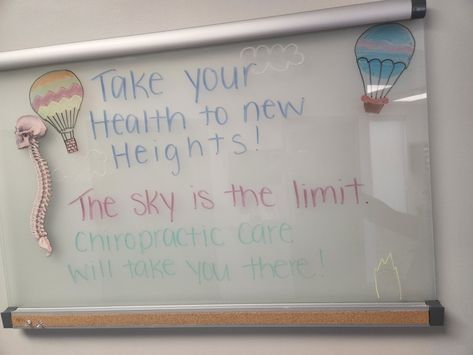 Take your
Health to new
Heights!
The sky is the limit.
chiropractic care
will take you there!